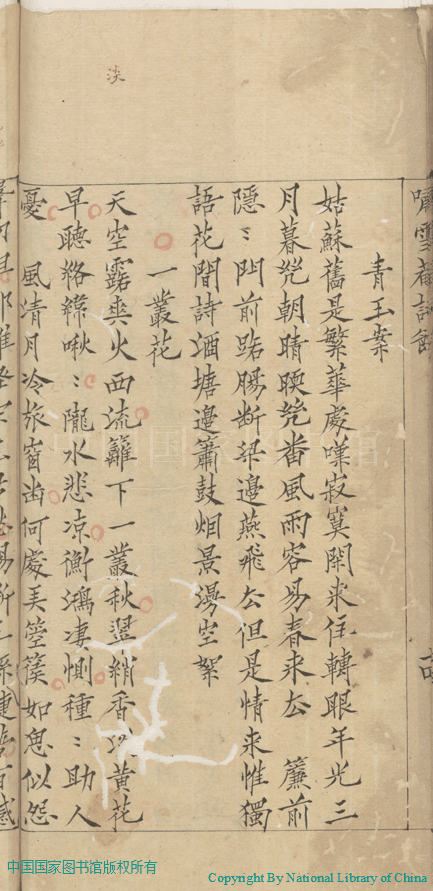 嘯雪菴詩餘
青玉案
姑蘇舊是繁華處嘆寂寞閑來住轉眼年光三
月暮幾朝晴暖幾番風雨容易春來去　簾前
隱〻門前路腸斷梁邊燕飛去但是情來惟獨
語花間詩酒塘邊簫鼓烟景漫空絮
一叢花
天空露爽火西流籬下一叢秋翠綃香
黃花
早聽絡緯啾〻隴水悲凉衡鴻凄惻種〻助人
憂　風清月冷旅窗幽何處美箜篌如思似怨
淡
中国国家图书馆版权所有
Copyright By National Library of China